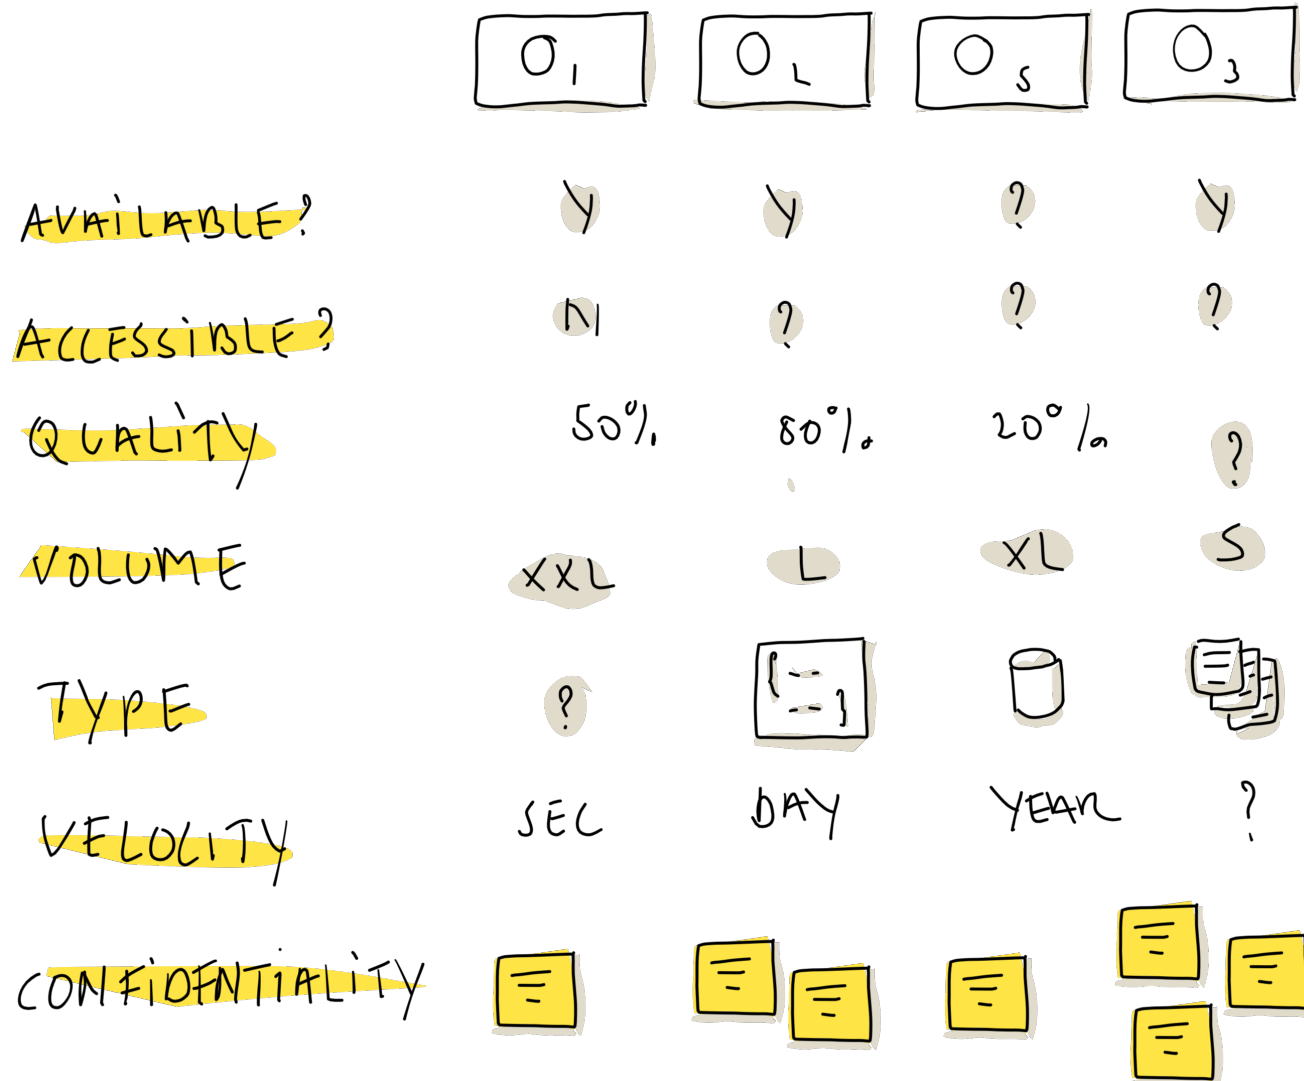 O1 OL OS O3
AVAiLABLE? Y Y ? Y
ACCESSiBLE? N ? ? ?
QUALiTY 50% 80% 20% ?
VOLUME XXL L XL S
TYPE ? { }
VELOCITY SEC DAY YEAR ?
CONFiDENTiALiTY